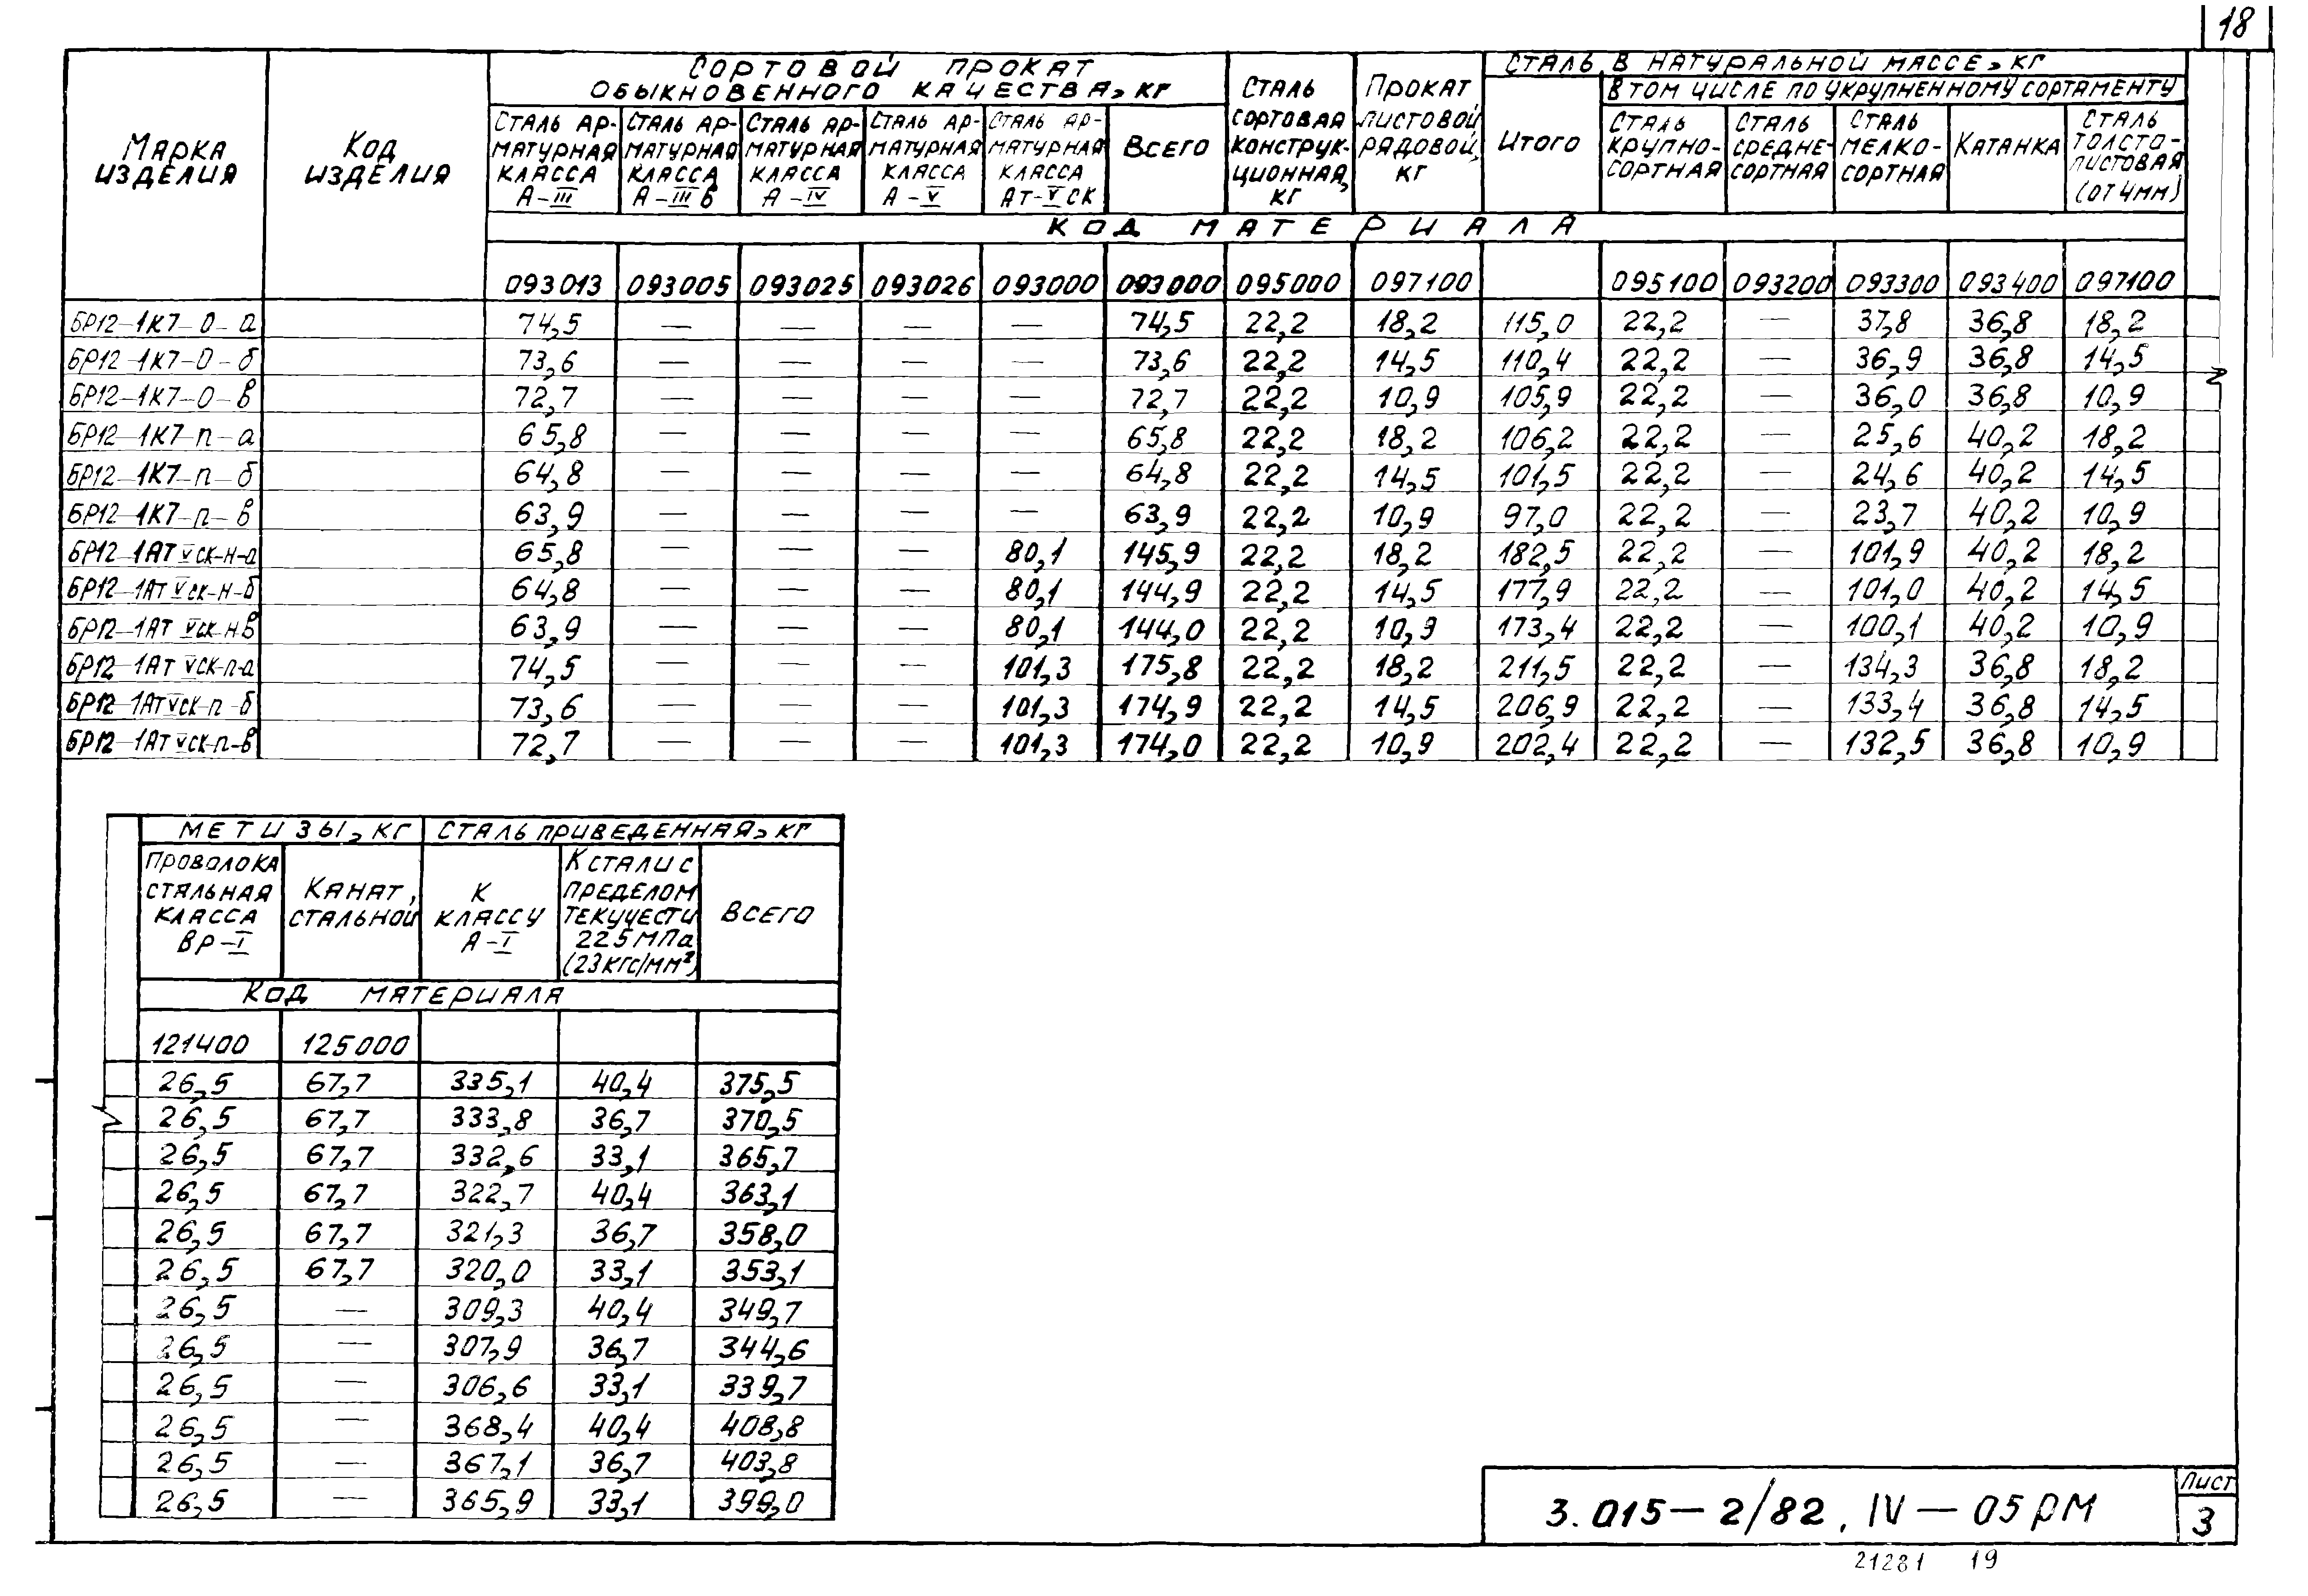 18
Марка изделия
Код изделия
Сортовой прокат обыкновенного качества, кг
Сталь арматурная класса А-III
Сталь арматурная класса А-IIIв
Сталь арматурная класса А-IV
Сталь арматурная класса А-V
Сталь арматурная класса Ат-Vск
Всего
Сталь сортовая конструкционная, кг
Прокат листовой рядовой, кг
Сталь в натуральной массе, кг
Итого
В том числе по укрупненному сортаменту
Сталь крупносортная
Сталь среднесортная
Сталь мелкосортная
Катанка
Сталь толстолистовая (от 4мм)
Код материала
093013 093005 093025 093026 093000 093000 095000 097100 095100 093200 093300 093400 097100
БР12-1К7-О-а 74,5 — — — — 74,5 22,2 18,2 115,0 22,2 — 37,8 36,8 18,2
БР12-1К7-О-б 73,6 — — — — 73,6 22,2 14,5 110,4 22,2 — 36,9 36,8 14,5
БР12-1К7-О-в 72,7 — — — — 72,7 22,2 10,9 105,9 22,2 — 36,0 36,8 10,9
БР12-1К7-П-а 65,8 — — — — 65,8 22,2 18,2 106,2 22,2 — 25,6 40,2 18,2
БР12-1К7-П-б 64,8 — — — — 64,8 22,2 14,5 101,5 22,2 — 24,6 40,2 14,5
БР12-1К7-П-в 63,9 — — — — 63,9 22,2 10,9 97,0 22,2 — 23,7 40,2 10,9
БР12-1АТVСК-Н-а 65,8 — — — 80,1 145,9 22,2 18,2 182,5 22,2 — 101,9 40,2 18,2
БР12-1АТVСК-Н-б 64,8 — — — 80,1 144,9 22,2 14,5 177,9 22,2 — 101,0 40,2 14,5
БР12-1АТ VСК-Н.В 63,9 — — — 80,1 144,0 22,2 10,9 173,4 22,2 — 100,1 40,2 10,9
БР12-1АТ VСК-П-а 74,5 — — — 101,3 175,8 22,2 18,2 211,5 22,2 — 134,3 36,8 18,2
БР12-1АТVСК-П-б 73,6 — — — 101,3 174,9 22,2 14,5 206,9 22,2 — 133,4 36,8 14,5
БР12-1АТVСК-П-в 72,7 — — — 101,3 174,0 22,2 10,9 202,4 22,2 — 132,5 36,8 10,9
Метизы, кг
Сталь приведенная, кг
Проволока стальная класса Вр-I
Канат, стальной
К классу А-I
К стали с пределом текучести 225 МПа (23 кгс/мм²)
Всего
Код материала
121400 125000
26,5 67,7 335,1 40,4 375,5
26,5 67,7 333,8 36,7 370,5
26,5 67,7 332,6 33,1 365,7
26,5 67,7 322,7 40,4 363,1
26,5 67,7 321,3 36,7 358,0
26,5 67,7 320,0 33,1 353,1
26,5 — 309,3 40,4 349,7
26,5 — 307,9 36,7 344,6
26,5 — 306,6 33,1 339,7
26,5 — 368,4 40,4 408,8
26,5 — 367,1 36,7 403,8
26,5 — 365,9 33,1 399,0
3.015-2/82. IV-05РМ
Лист
3
21281 19